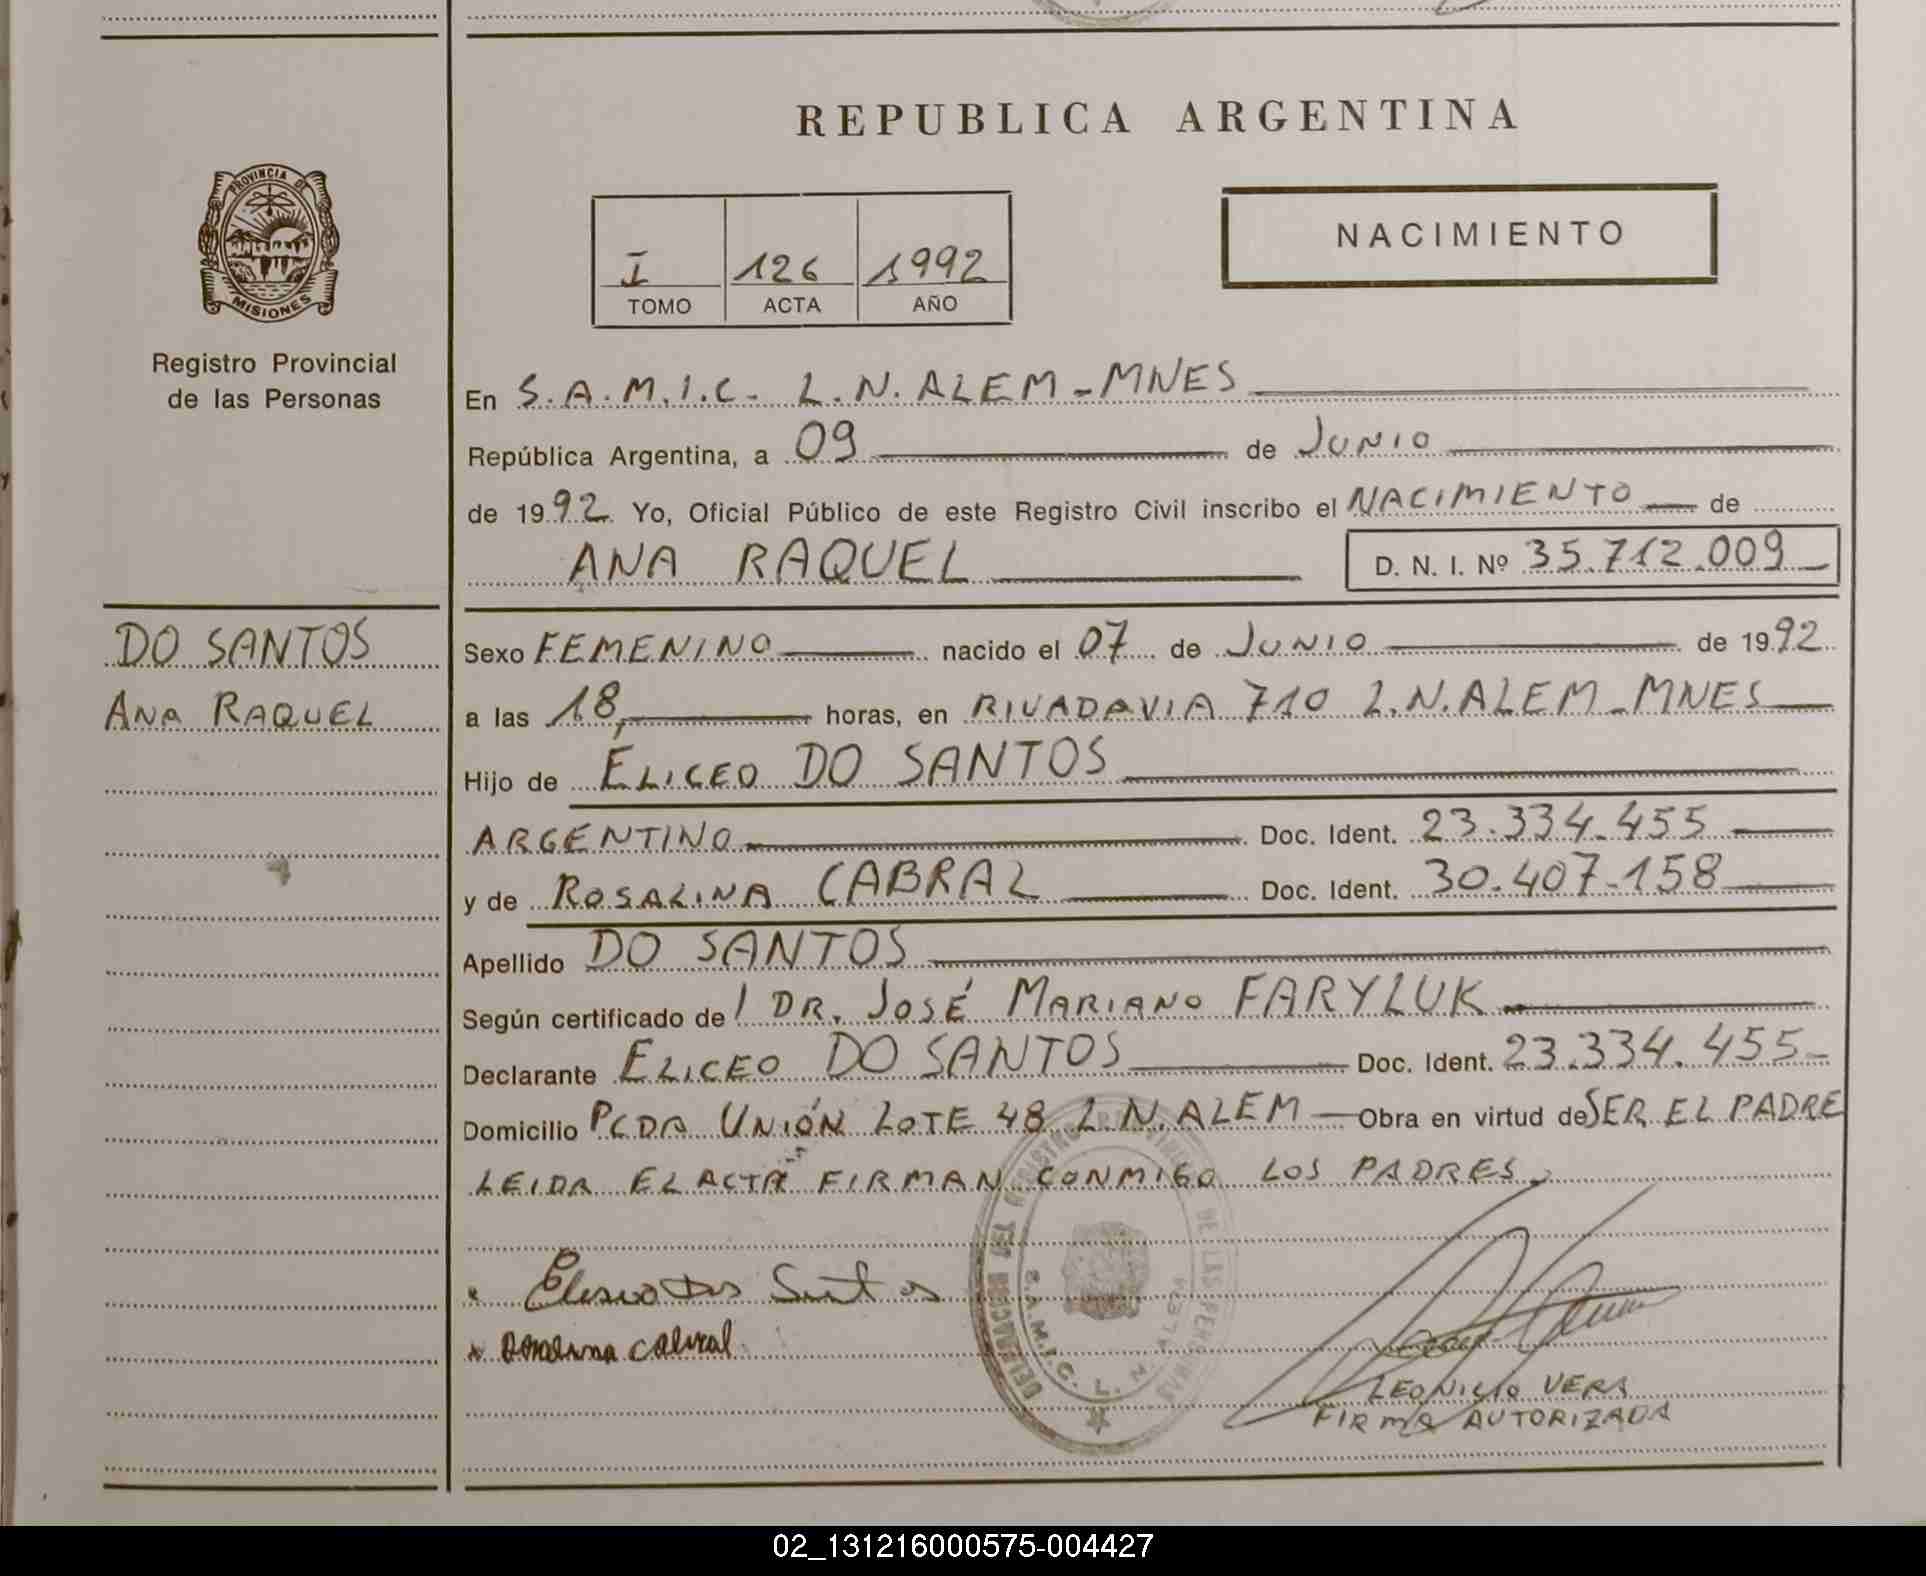 REPUBLICA ARGENTINA
PROVINCIA DE
MISIONES
Registro Provincial
de las Personas
I 126 1992
TOMO ACTA AÑO
NACIMIENTO
En S.A.M.I.C. L.N. ALEM - MNES
República Argentina, a 09 de JUNIO
de 1992 Yo, Oficial Público de este Registro Civil inscribo el NACIMIENTO de
ANA RAQUEL
D. N. I. Nº 35.712.009
DO SANTOS
ANA RAQUEL
Sexo FEMENINO nacido el 07 de JUNIO de 1992
a las 18, horas, en RIVADAVIA 710 L.N.ALEM - MNES
Hijo de ELICEO DO SANTOS
ARGENTINO Doc. Ident. 23.334.455
y de ROSALINA CABRAL Doc. Ident. 30.407.158
Apellido DO SANTOS
Según certificado de / DR. JOSÉ MARIANO FARYLUK
Declarante ELICEO DO SANTOS Doc. Ident. 23.334.455
Domicilio PCDA UNIÓN LOTE 48 L.N.ALEM Obra en virtud de SER EL PADRE
LEIDA EL ACTA FIRMAN CONMIGO LOS PADRES.
DE LAS PERSONAS
S.A.M.I.C. L. N. ALEM
LEONICIO VERA
FIRMA AUTORIZADA
02_131216000575-004427